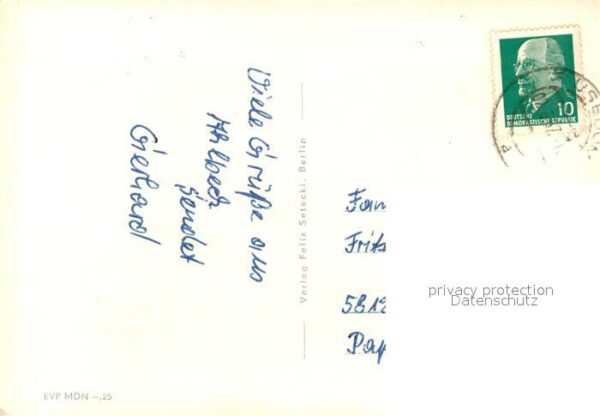 Viele Grüße aus
Ahlbeck
sendet
Gerhard
Verlag Felix Setecki, Berlin
EVP MDN –,25
10
DEUTSCHE
DEMOKRATISCHE REPUBLIK
USEDOM
Fam
Fritz
5812
Pap
privacy protection
Datenschutz